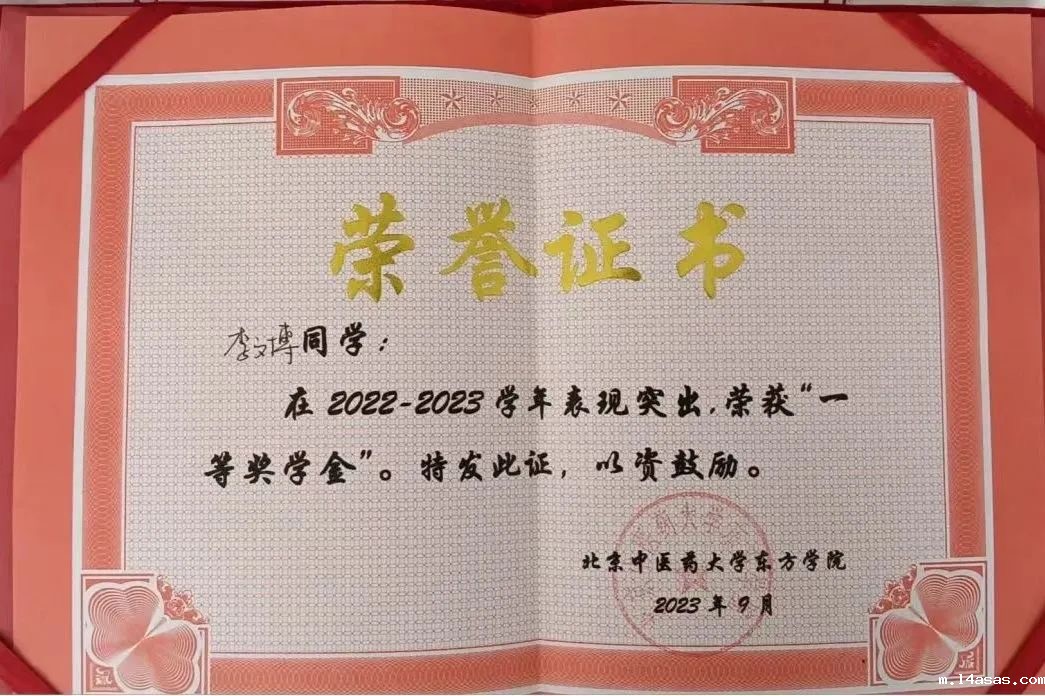 荣誉证书
李文博同学：
在2022-2023学年表现突出，荣获“一
等奖学金”。特发此证，以资鼓励。
北京中医药大学东方学院
2023年9月
m.14asas.com